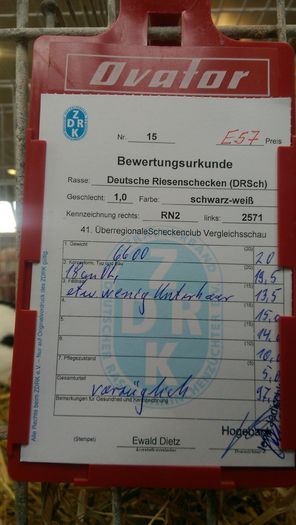 Ovator
ZDRK
Nr. 15 E57 Preis
Bewertungsurkunde
Rasse: Deutsche Riesenschecken (DRSch)
Geschlecht: 1,0 Farbe: schwarz-weiß
Kennzeichnung rechts: RN2 links: 2571
41. ÜberregionaleScheckenclub Vergleichsschau
1. Gewicht 6600 (20) 20
2. Körperform, Typ und Bau (20) 19,5
18 cm
3. Fellhaut
etw. wenig Unterhaar 13,5
15,0
14,0
10,0
7. Pflegezustand 5,0
Gesamturteil vorzüglich 97,
Bemerkungen für Gesundheit und Kennzeichnung
(Stempel) Ewald Dietz
Alle Rechte beim ZDRK e.V. – Nur auf Originalvordruck des ZDRK gültig.